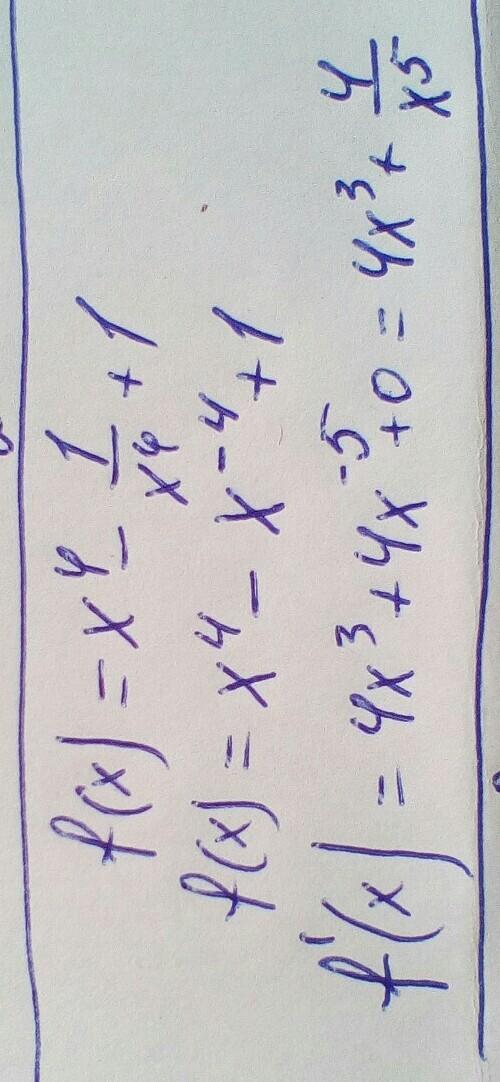 f(x) = x⁴ - 1/x⁴ + 1
f(x) = x⁴ - x⁻⁴ + 1
f'(x) = 4x³ + 4x⁻⁵ + 0 = 4x³ + 4/x⁵